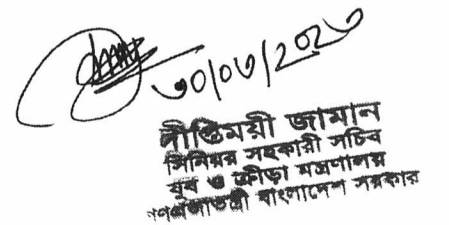 ৩০/০৩/২০২৩
দীপ্তিময়ী জামান
সিনিয়র সহকারী সচিব
যুব ও ক্রীড়া মন্ত্রণালয়
গণপ্রজাতন্ত্রী বাংলাদেশ সরকার